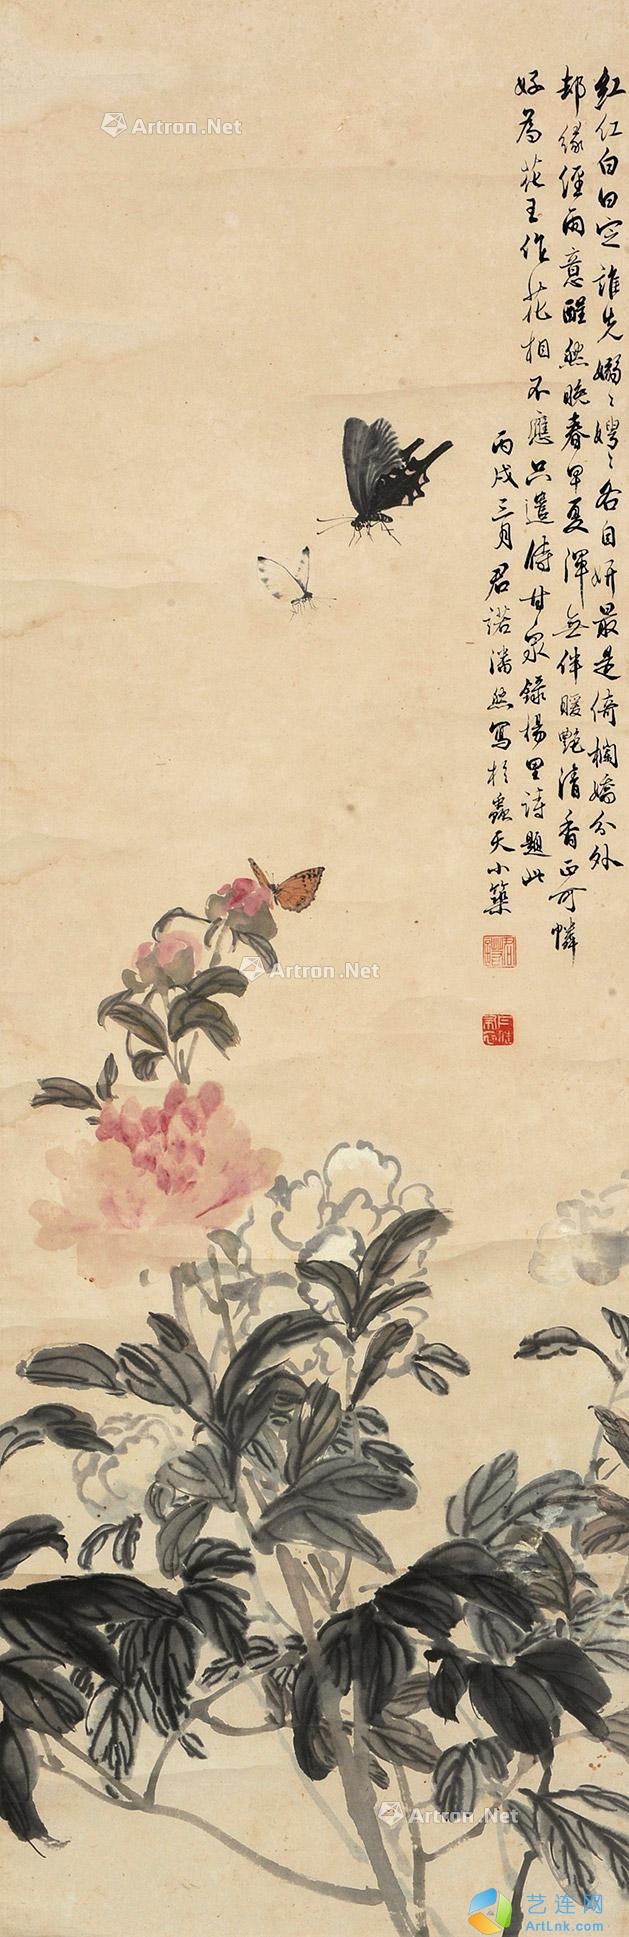 紅紅白白定誰先嫋〻娉〻各自妍最是倚欄嬌分外
却緣經雨意醒然晚春早夏渾無伴暖艷清香正可憐
好為花王作花相不應只遣侍甘泉錄楊里詩題此
丙戌三月君諾潘然寫於蟲天小築
Artron.Net
Artron.Net
Artron.Net
艺连网
ArtLnk.com